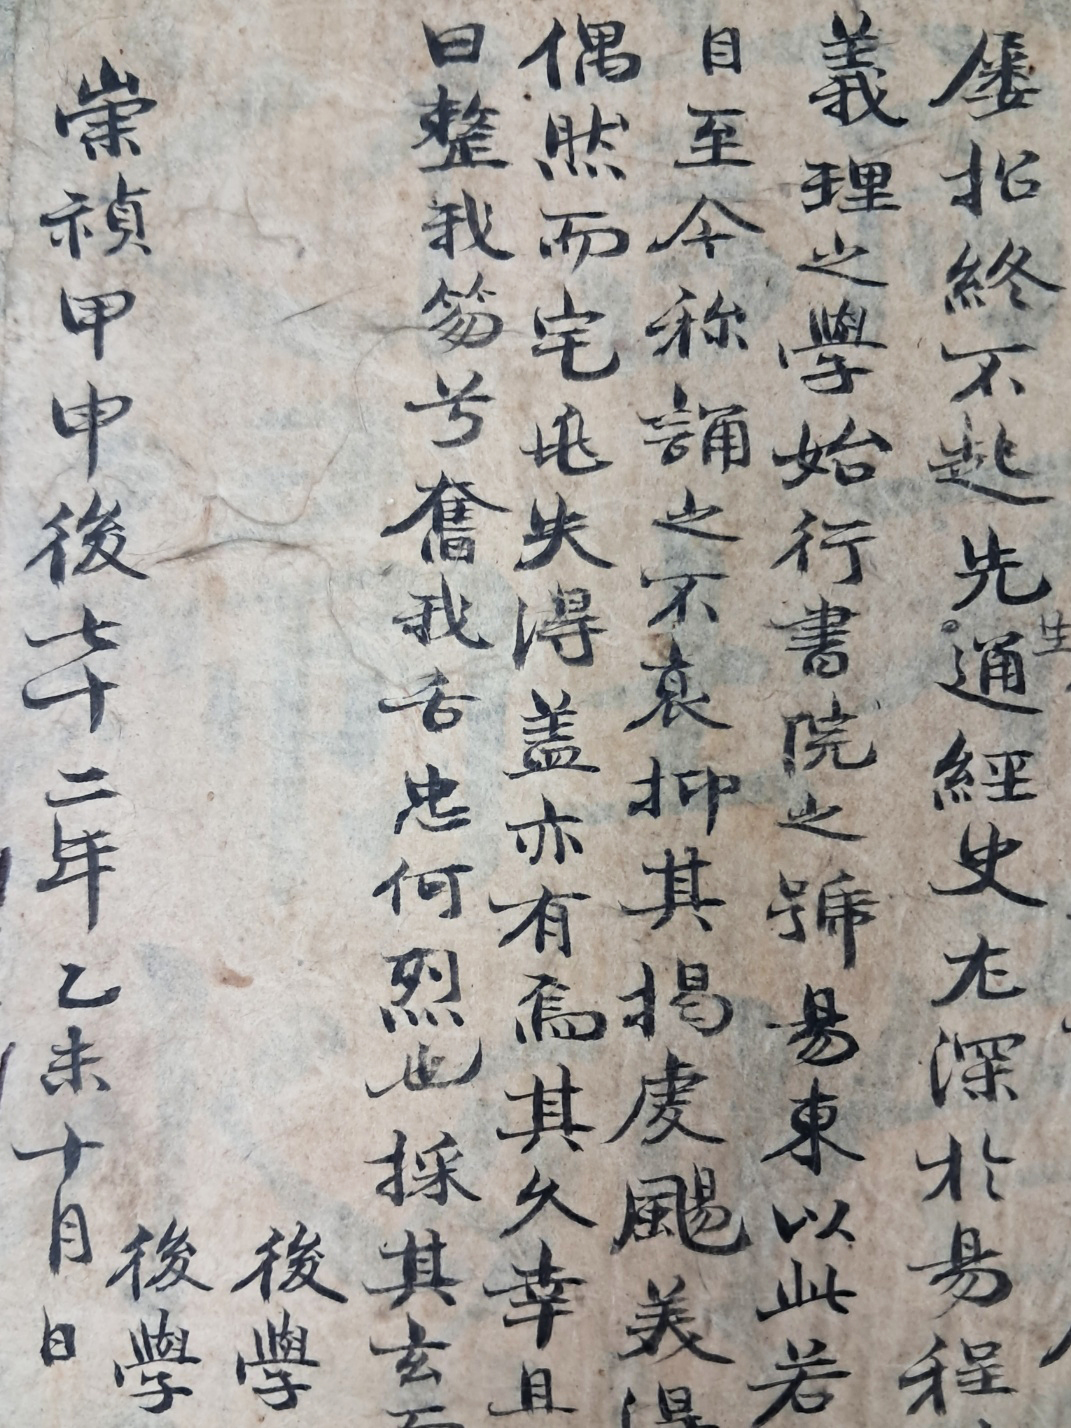 屢招終不起先生通經史尤深於易程
義理之學始行書院之號易東以此若
自至今称誦之不衰抑其揭虔颺美得
偶然而宅兆失得盖亦有焉其久幸且
曰整我笏兮奮我舌忠何烈也採其玄而
後學
後學
崇禎甲申後七十二年乙未十月日